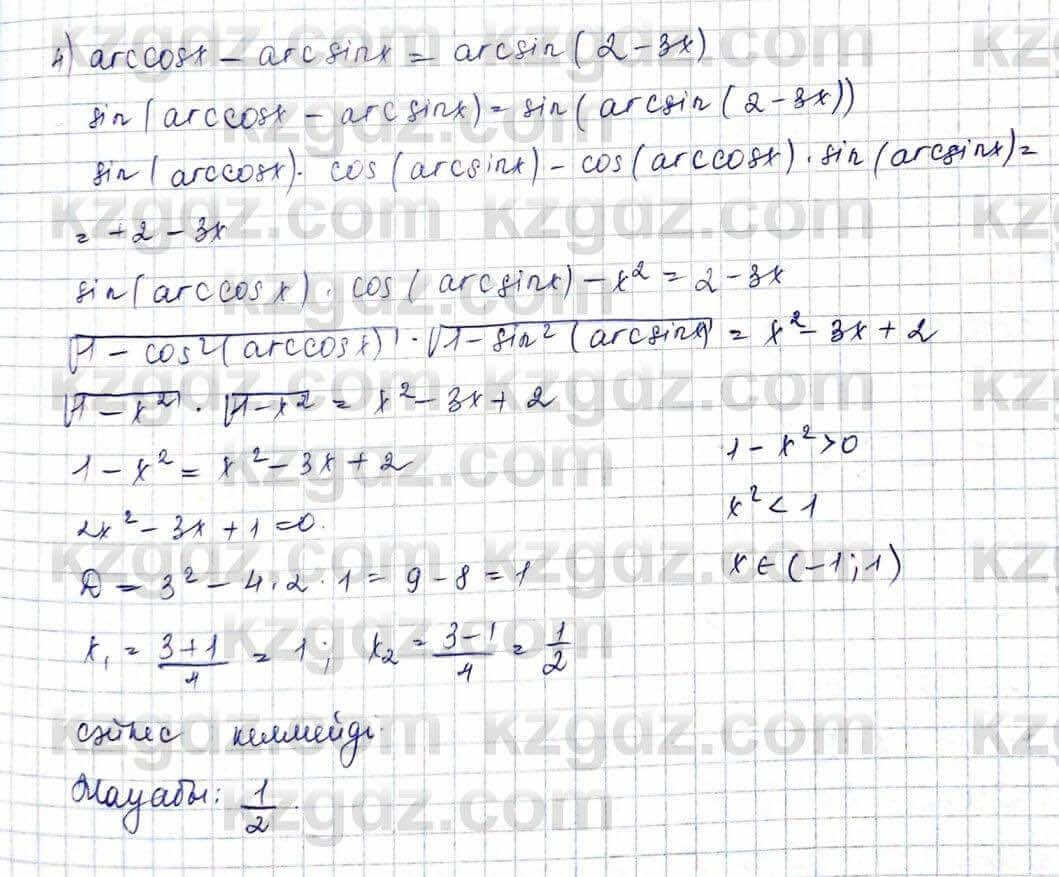 4) arccosx - arcsinx = arcsin(2-3x)
sin(arccosx - arcsinx) = sin(arcsin(2-3x))
sin(arccosx)· cos(arcsinx) - cos(arccosx)·sin(arcsinx) =
= +2 - 3x
sin(arccosx)· cos(arcsinx) - x² = 2-3x
√(1 - cos²(arccosx)) · √(1 - sin²(arcsinx)) = x² - 3x + 2
√(1-x²) · √(1-x²) = x² - 3x + 2
1 - x² = x² - 3x + 2
1 - x² > 0
x² < 1
2x² - 3x + 1 = 0.
D = 3² - 4·2·1 = 9 - 8 = 1
x ∈ (-1; 1)
x₁ = (3+1)/4 = 1; x₂ = (3-1)/4 = 1/2
сәйкес келмейді
Жауабы: 1/2.
kzgdz.com